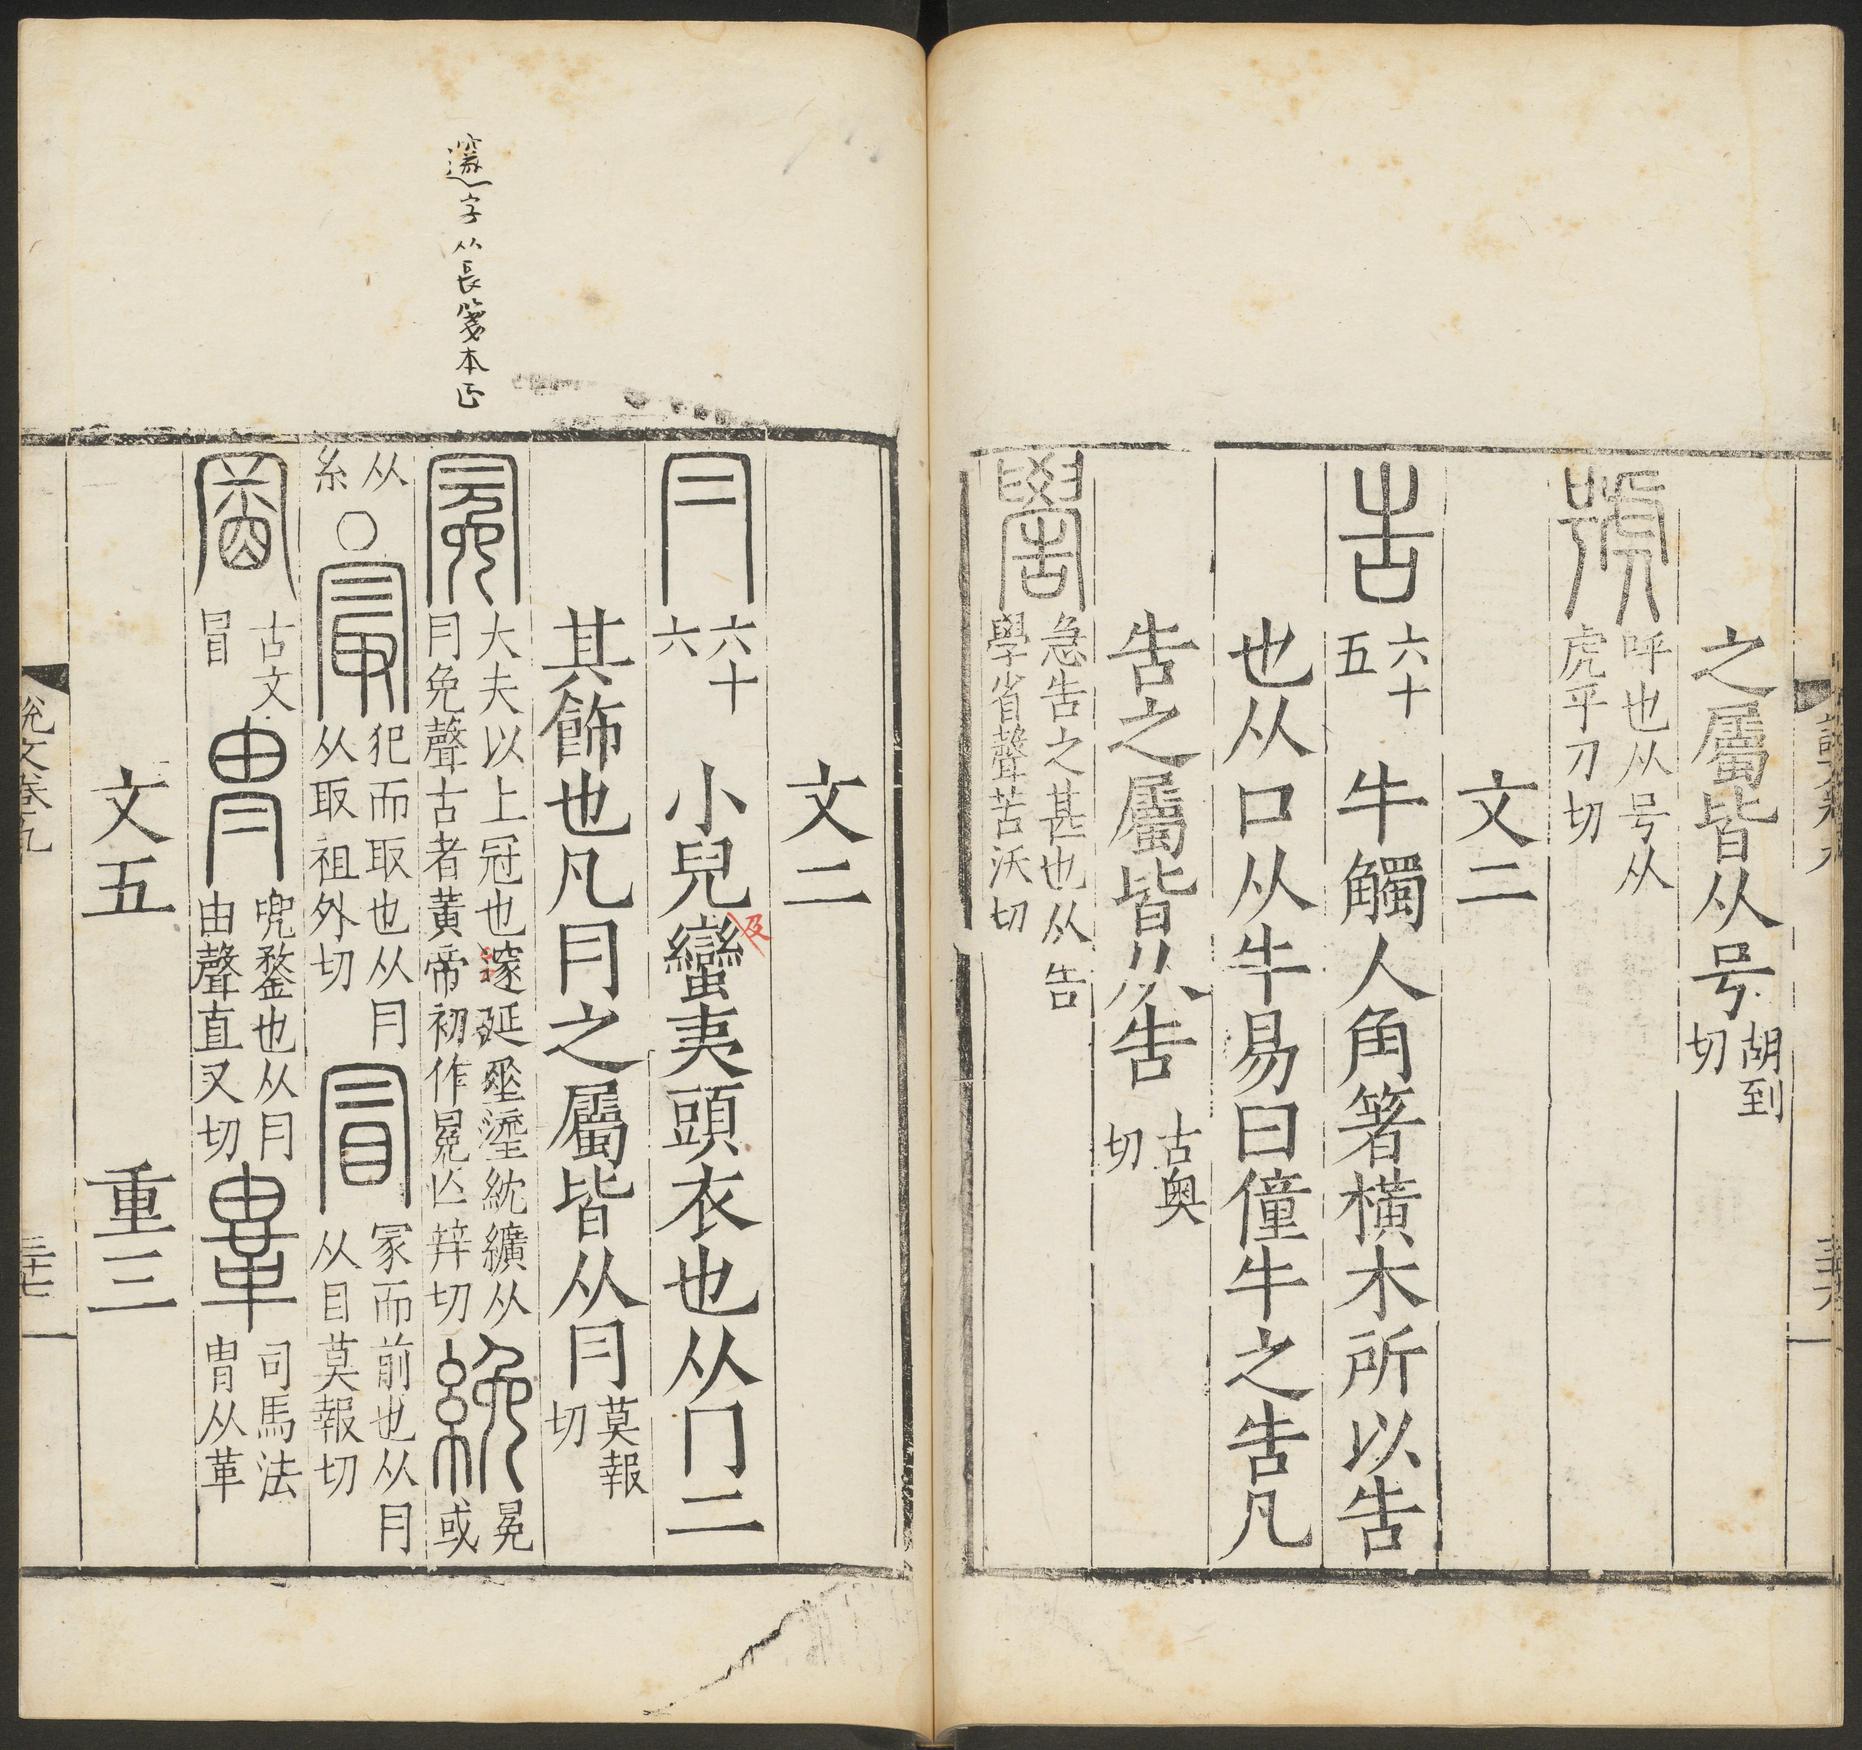 之屬皆从号胡到切
號呼也从号从虎乎刀切
文二
告六十五牛觸人角箸橫木所以告
也从口从牛易曰僮牛之告凡
告之屬皆从告古奥切
嚳急告之甚也从告學省聲苦沃切
邃字从長箋本正
文二
冃六十六小兒及蠻夷頭衣也从冂二
其飾也凡冃之屬皆从冃莫報切
冕大夫以上冠也邃延垂瑬紞纊从冃免聲古者黃帝初作冕亾辡切絻冕或
从糸〇冣犯而取也从冃从取祖外切冒冡而前也从冃从目莫報切
古文冒冑兜鍪也从冃由聲直又切𩊄司馬法冑从革
文五 重三
說文卷九 三十七